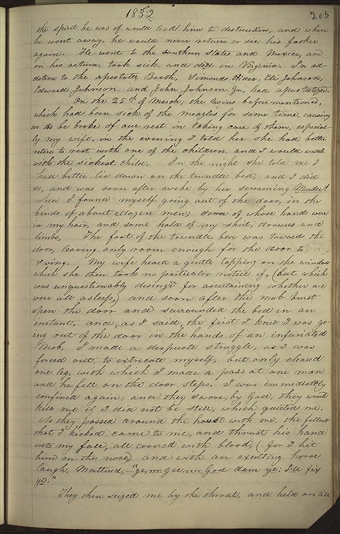 1832
205
the spirit he was of would lead him to destruction, and when
he went away, he would never return or see his father
again. He went to the Southern States and Mexico, and
on his return, took sick, and died in Virginia. In ad-
dition to the apostate Booth, Simonds Rider, Eli Johnson,
Edward Johnson and John Johnson Jr. had apostatized.
On the 25th of March, the twins before mentioned,
which had been sick of the measles for some time, causing
us to be broke of our rest in taking care of them, especial-
ly my wife, in the evening I told her she had better
retire to rest with one of the children, and I would watch
with the sickest child. In the night she told me I
had better lie down on the trundle bed, and I did
so, and was soon after awoke by her screaming Murder!
when I found myself going out of the door, in the
hands of about a dozen men; some of whose hands were
in my hair, and some hold of my shirt, drawers and
limbs. The foot of the trundle bed was towards the
door, leaving only room enough for the door to
swing. My wife heard a gentle tapping on the windows
which she then took no particular notice of, (but which
was unquestionably designed for ascertaining whether we
were all asleep,) and soon after the mob burst
open the door and surrounded the bed in an
instant, and, as I said, the first I knew I was go-
ing out of the door in the hands of an infuriated
mob. I made a desperate struggle, as I was
forced out, to extricate myself, but only cleared
one leg, with which I made a pass at one man
and he fell on the door steps. I was immediately
confined again; and they swore by God, they would
kill me if I did not be still, which quieted me.
As they passed around the house with me, the fellow
that I kicked came to me, and thrust his hand
into my face, all covered with blood, (for I hit
him on the nose,) and with an exulting horse
laugh muttered, "gee, gee, God dam ye, I'll fix
ye."
They then seized me by the throat, and held on till